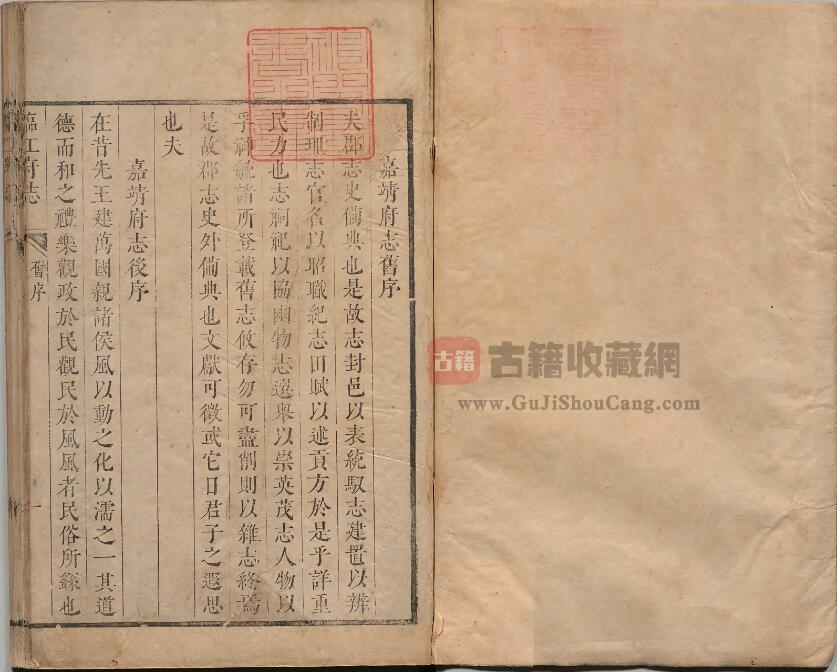 嘉靖府志舊序
夫郡志史備典也是故志封邑以表統馭志建置以辨
制理志官名以昭職紀志田賦以述貢方於是乎詳重
民力也志祠祀以協幽物志選舉以崇英茂志人物以
乎神毓諸所登載舊志攸存勿可盡削則以雜志終焉
是故郡志史外備典也文獻可徵或它日君子之遐思
也夫
嘉靖府志後序
在昔先王建萬國親諸侯風以動之化以濡之一其道
德而和之禮樂觀政於民觀民於風風者民俗所繇也
臨江府志
舊序
一
古籍
古籍收藏網
www.GuJiShouCang.com